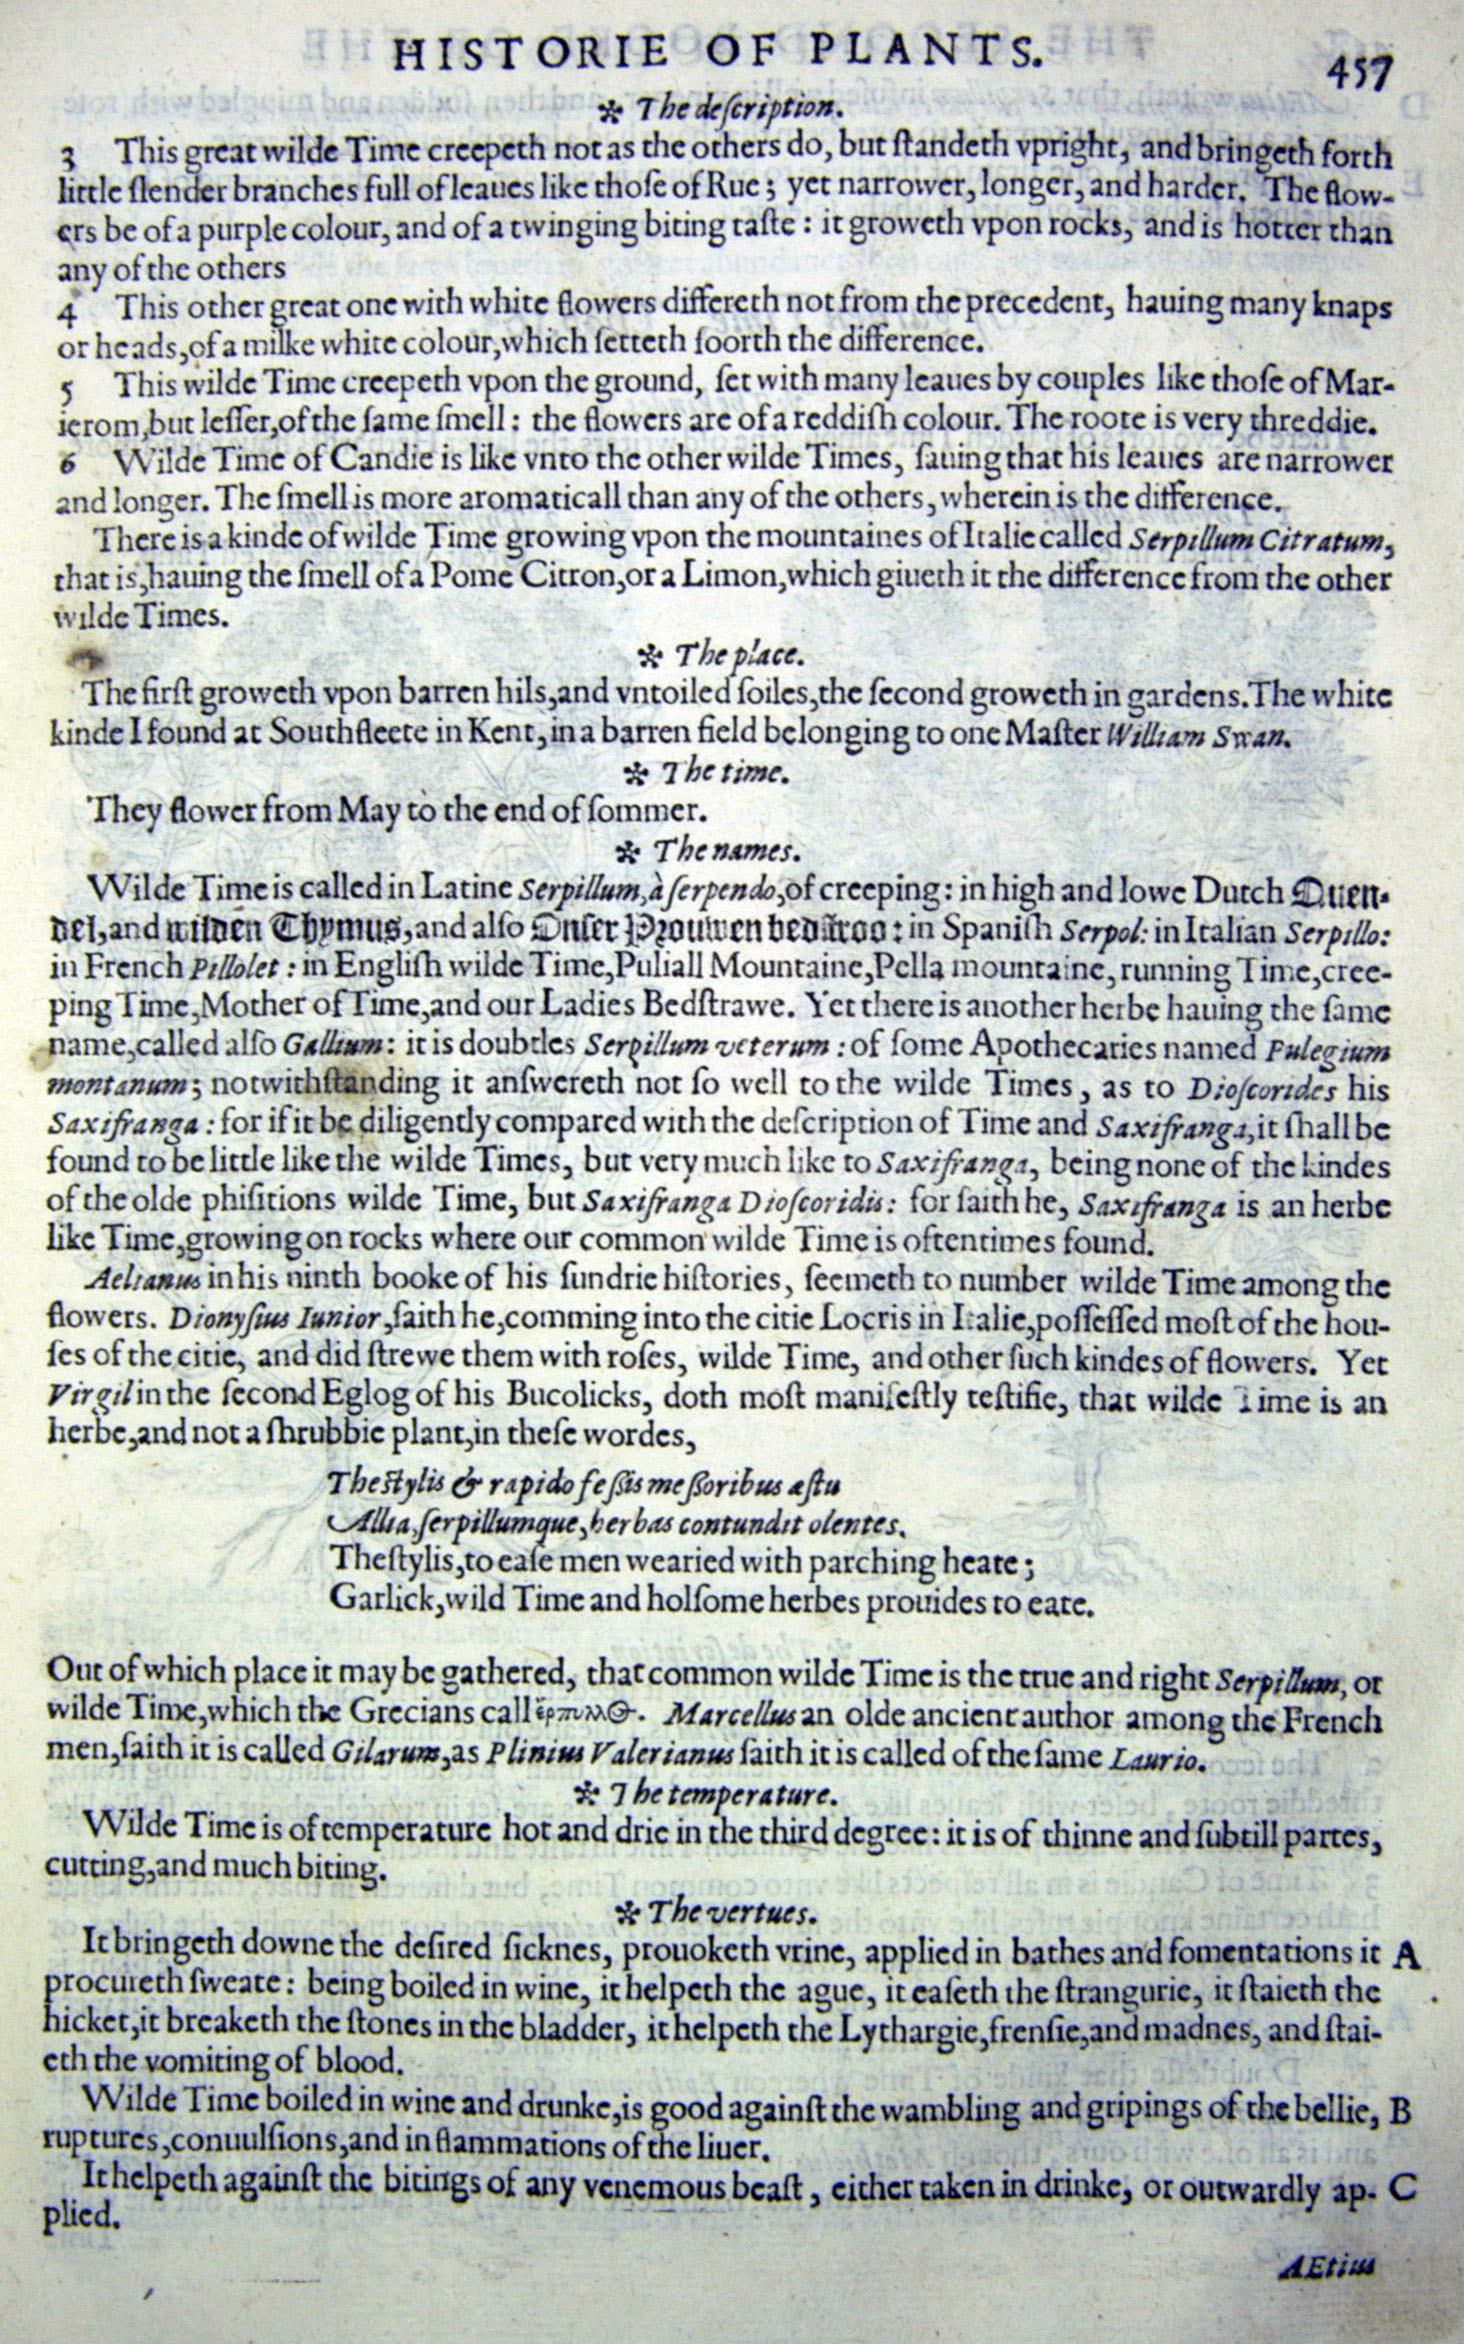 HISTORIE OF PLANTS.
457
❊ The deſcription.
3 This great wilde Time creepeth not as the others do, but ſtandeth vpright, and bringeth forth
little ſlender branches full of leaues like thoſe of Rue; yet narrower, longer, and harder. The flow-
ers be of a purple colour, and of a twinging biting taſte: it groweth vpon rocks, and is hotter than
any of the others
4 This other great one with white flowers differeth not from the precedent, hauing many knaps
or heads, of a milke white colour, which ſetteth foorth the difference.
5 This wilde Time creepeth vpon the ground, ſet with many leaues by couples like thoſe of Mar-
ierom, but leſſer, of the ſame ſmell: the flowers are of a reddiſh colour. The roote is very threddie.
6 Wilde Time of Candie is like vnto the other wilde Times, ſauing that his leaues are narrower
and longer. The ſmell is more aromaticall than any of the others, wherein is the difference.
There is a kinde of wilde Time growing vpon the mountaines of Italie called Serpillum Citratum,
that is, hauing the ſmell of a Pome Citron, or a Limon, which giueth it the difference from the other
wilde Times.
❊ The place.
The firſt groweth vpon barren hils, and vntoiled ſoiles, the ſecond groweth in gardens. The white
kinde I found at Southfleete in Kent, in a barren field belonging to one Maſter William Swan.
❊ The time.
They flower from May to the end of ſommer.
❊ The names.
Wilde Time is called in Latine Serpillum, à ſerpendo, of creeping: in high and lowe Dutch Quen-
del, and wilden Thymus, and alſo Onſer Vrouwen bedſtroo: in Spaniſh Serpol: in Italian Serpillo:
in French Pillolet: in Engliſh wilde Time, Puliall Mountaine, Pella mountaine, running Time, cree-
ping Time, Mother of Time, and our Ladies Bedſtrawe. Yet there is another herbe hauing the ſame
name, called alſo Gallium: it is doubtles Serpillum veterum: of ſome Apothecaries named Pulegium
montanum; notwithſtanding it anſwereth not ſo well to the wilde Times, as to Dioſcorides his
Saxifranga: for if it be diligently compared with the deſcription of Time and Saxifranga, it ſhall be
found to be little like the wilde Times, but very much like to Saxifranga, being none of the kindes
of the olde phiſitions wilde Time, but Saxifranga Dioſcoridis: for ſaith he, Saxifranga is an herbe
like Time, growing on rocks where our common wilde Time is oftentimes found.
Aelianus in his ninth booke of his ſundrie hiſtories, ſeemeth to number wilde Time among the
flowers. Dionyſius Iunior, ſaith he, comming into the citie Locris in Italie, poſſeſſed moſt of the hou-
ſes of the citie, and did ſtrewe them with roſes, wilde Time, and other ſuch kindes of flowers. Yet
Virgil in the ſecond Eglog of his Bucolicks, doth moſt manifeſtly teſtifie, that wilde Time is an
herbe, and not a ſhrubbie plant, in theſe wordes,
Theſtylis & rapido feſſis meſſoribus æſtu
Allia, ſerpillumque, herbas contundit olentes.
Theſtylis, to eaſe men wearied with parching heate;
Garlick, wild Time and holſome herbes prouides to eate.
Out of which place it may be gathered, that common wilde Time is the true and right Serpillum, or
wilde Time, which the Grecians call ἕρπυλλος. Marcellus an olde ancient author among the French
men, ſaith it is called Gilarum, as Plinius Valerianus ſaith it is called of the ſame Laurio.
❊ The temperature.
Wilde Time is of temperature hot and drie in the third degree: it is of thinne and ſubtill partes,
cutting, and much biting.
❊ The vertues.
It bringeth downe the deſired ſicknes, prouoketh vrine, applied in bathes and fomentations it A
procureth ſweate: being boiled in wine, it helpeth the ague, it eaſeth the ſtrangurie, it ſtaieth the
hicket, it breaketh the ſtones in the bladder, it helpeth the Lythargie, frenſie, and madnes, and ſtai-
eth the vomiting of blood.
Wilde Time boiled in wine and drunke, is good againſt the wambling and gripings of the bellie, B
ruptures, conuulſions, and inflammations of the liuer.
It helpeth againſt the bitings of any venemous beaſt, either taken in drinke, or outwardly ap- C
plied.
AEtius